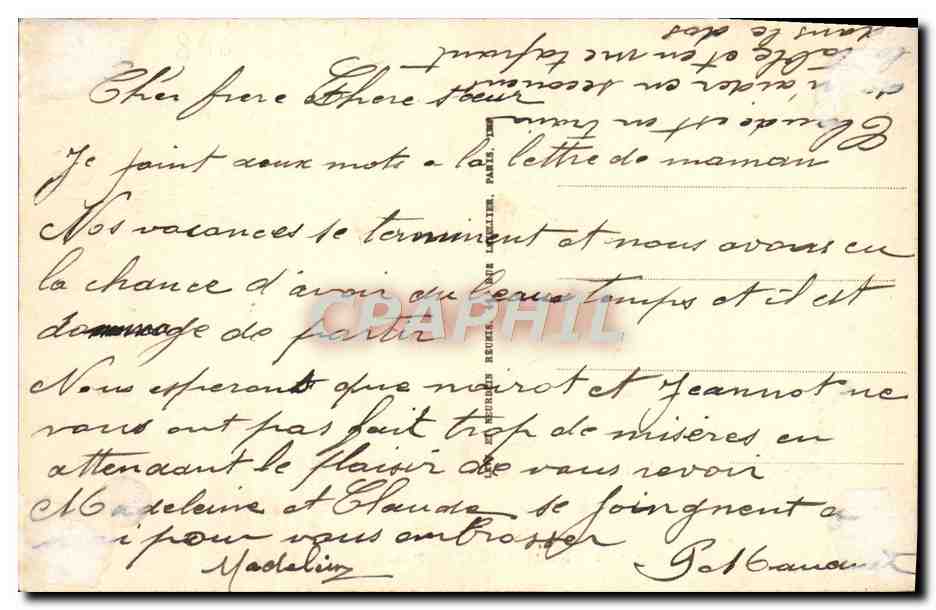 Cher frere & chere sœur
Je joint deux mots a la lettre de maman
Nos vacances se terminent et nous avons eu
la chance d'avoir du beau temps et il est
dommage de partir
Nous esperons que noirot et Jeannot ne
vous ont pas fait trop de misères en
attendant le plaisir de vous revoir
Madeleine et Claude se joingnent a
i pour vous embrasser
Madeleine
Claude est en train
m'aider en secouant
la table et en me tapant
dans le dos
PARIS, IMP
CPARPHIL